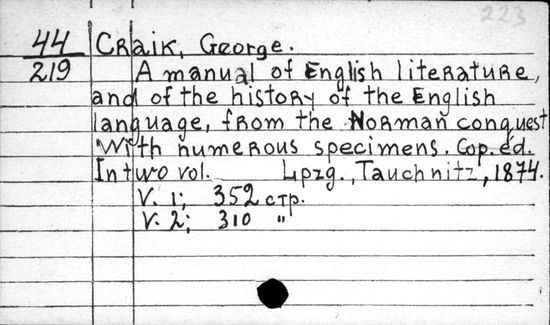 223
44 Craik, George.
219 A manual of English literature,
and of the history of the English
language, from the Norman conquest
With numerous specimens. Cop. éd.
In two vol. Lpzg., Tauchnitz, 1874.
V. 1; 352 стр.
V. 2; 310 "